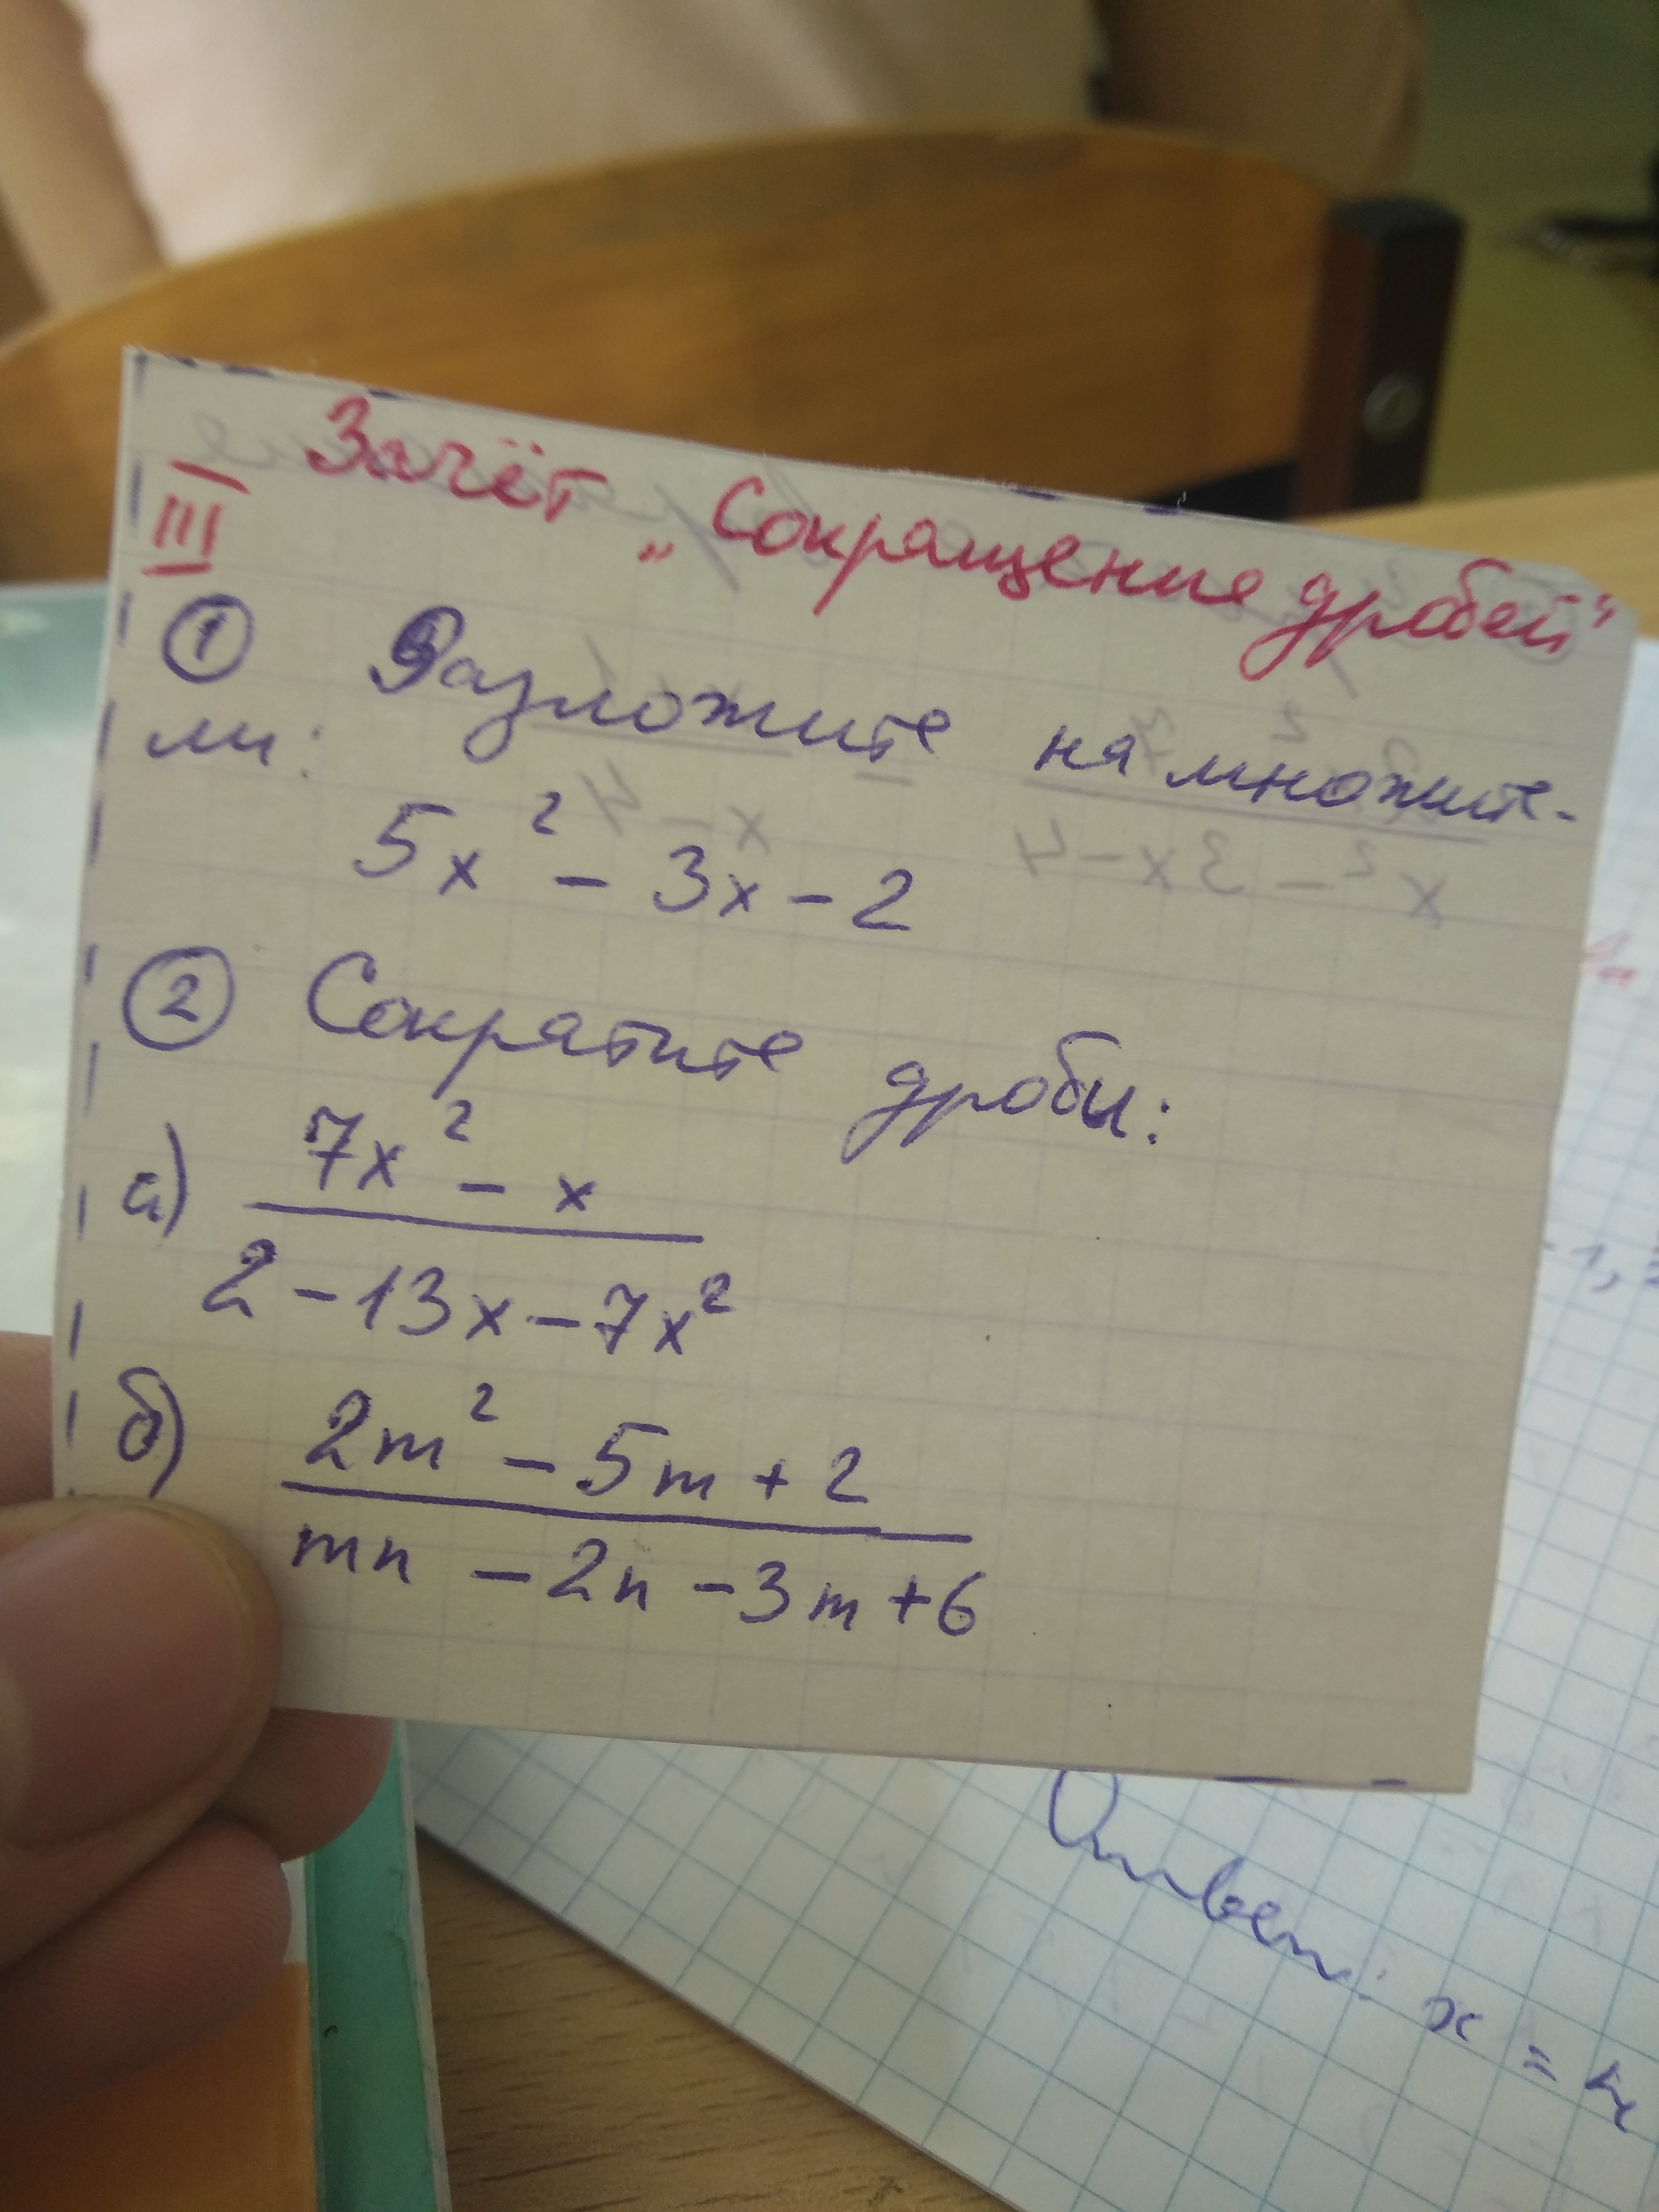 Зачёт „Сокращение дробей"
III
① Разложите на множите-
ли:
5x² - 3x - 2
② Сократите дроби:
а) 7x² - x
2 - 13x - 7x²
б) 2m² - 5m + 2
mn - 2n - 3m + 6
Ответ: x = 4